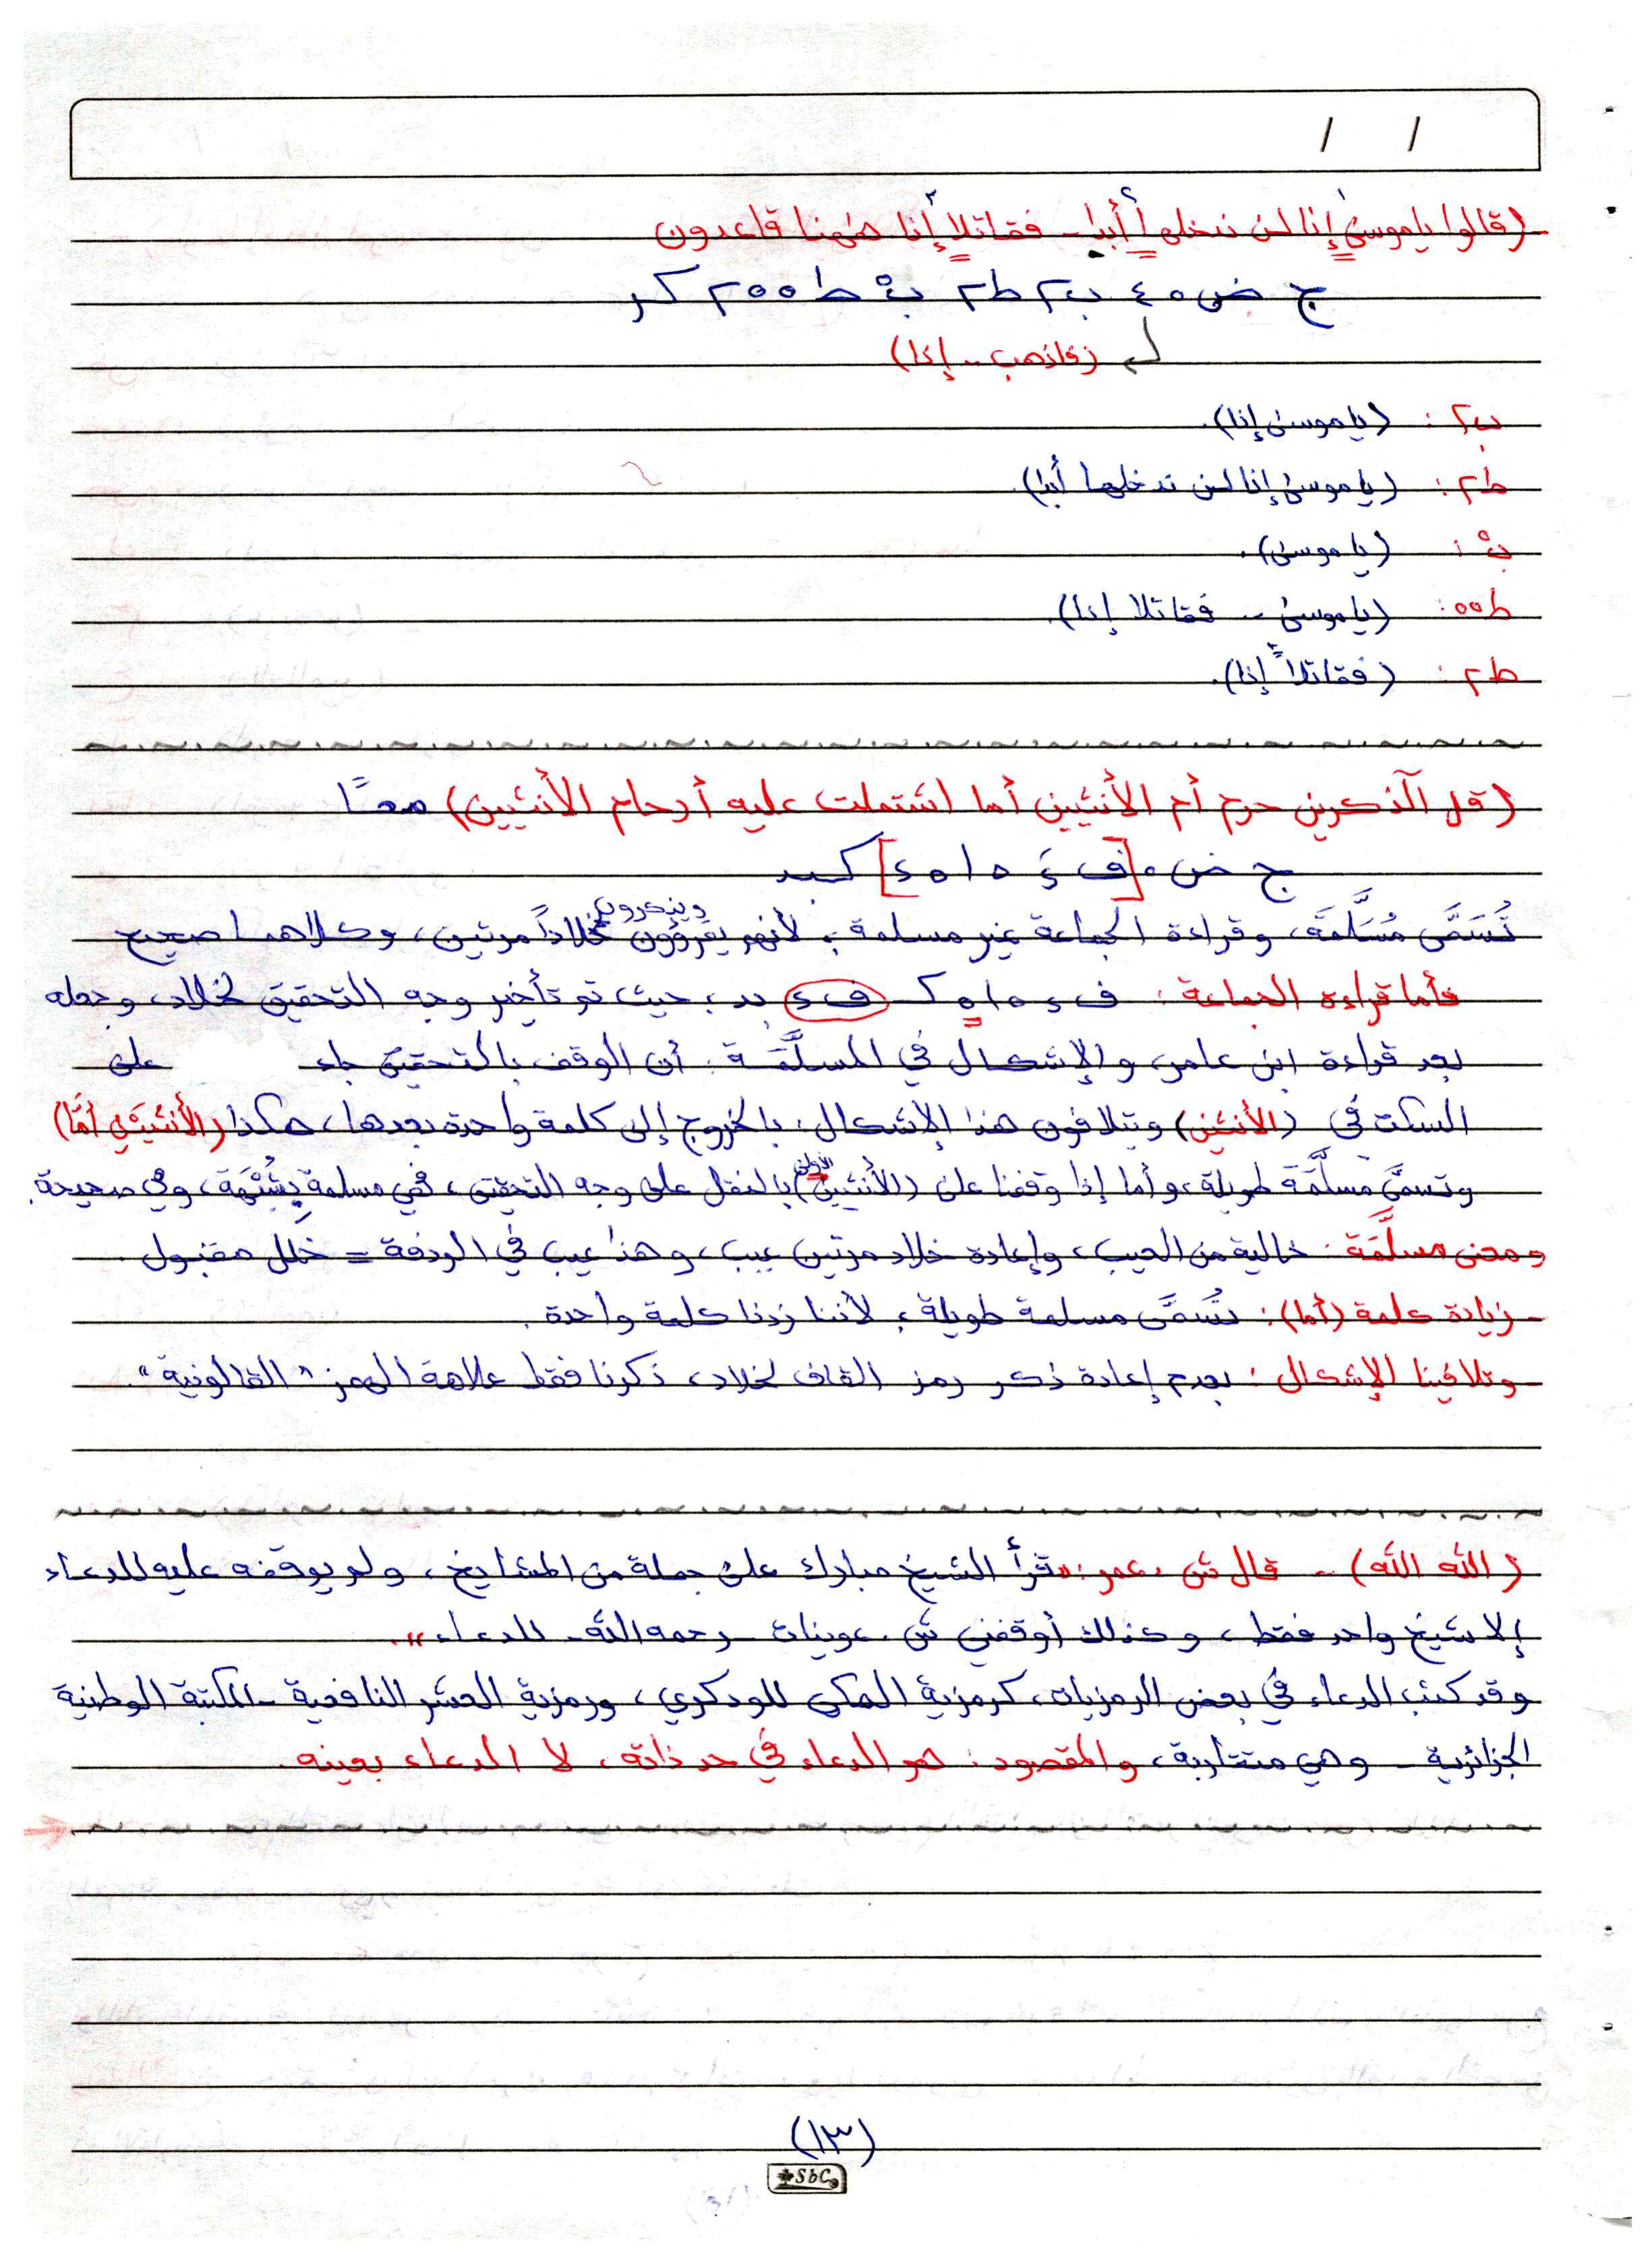 / /
(قالوا ياموسىٰ إنا لن ندخلها أبدا - فقاتلا إنا هٰهنا قاعدون
ج ض ٥ ٤ ب٢ ط٢ بْ ط٥٥ ٢ كر
(فاذهب .. إنا)
ب٢ : (ياموسىٰ إنا).
ط٢ : (ياموسىٰ إنا لن ندخلها أبدا)
بْ : (ياموسىٰ).
ط٥٥ : (ياموسىٰ .. فقاتلا إنا).
ط٢ : (فقاتلا إنا).
(قل آلذكرين حرم أم الأنثيين أما اشتملت عليه أرحام الأنثيين) معًا
ج ض ٥ [ف ءَ ٥ ا ٥ ء] كبد
تُسَمَّى مُسَلَّمَة، وقراءة الجماعة غير مسلمة؛ لأنهم يقرؤون ويذكرون خلاداً مرتين، وكلاهما صحيح
فأما قراءة الجماعة: ف ء ٥ ا ٥ ك ف ء بد، حيث تم تأخير وجه التحقيق لخلاد، وجعله
بعد قراءة ابن عامر، والإشكال في المسلَّمَة: أن الوقف بالتحقيق جاء على
السكت في (الأنثيين) ويتلافون هذا الإشكال: بالخروج إلى كلمة واحدة بعدها، هكذا (الأنثيَيْنِ أمَّا)
وتسمَّى مسلَّمَة طويلة، وأما إذا وقفنا على (الأنثيين) الأولى بالنقل على وجه التحقيق، فهي مسلمة، وهي صحيحة.
ومعنى مسلَّمَة: خالية من العيب، وإعادة خلاد مرتين عيب، وهذا عيب في الردفة = خلل مقبول.
- زيادة كلمة (أما): تُسَمَّى مسلمة طويلة؛ لأننا زدنا كلمة واحدة.
- وتلافينا الإشكال: بعدم إعادة ذكر رمز القاف لخلاد، ذكرنا فقط علامة الهمز "القالونية".
(الله الله) - قال ش. عمر: "قرأ الشيخ مبارك على جملة من المشايخ، ولم يوقفه عليه للدعاء
إلا شيخ واحد فقط، وكذلك أوقفني ش. عوينات - رحمه الله - للدعاء".
وقد كتب الدعاء في بعض الرمزيات، كرمزية المكي للودكري، ورمزية العشر النافعية - المكتبة الوطنية
الجزائرية - وهي متقاربة، والمقصود: هو الدعاء في حد ذاته، لا الدعاء بعينه.
(١٣)
SbC